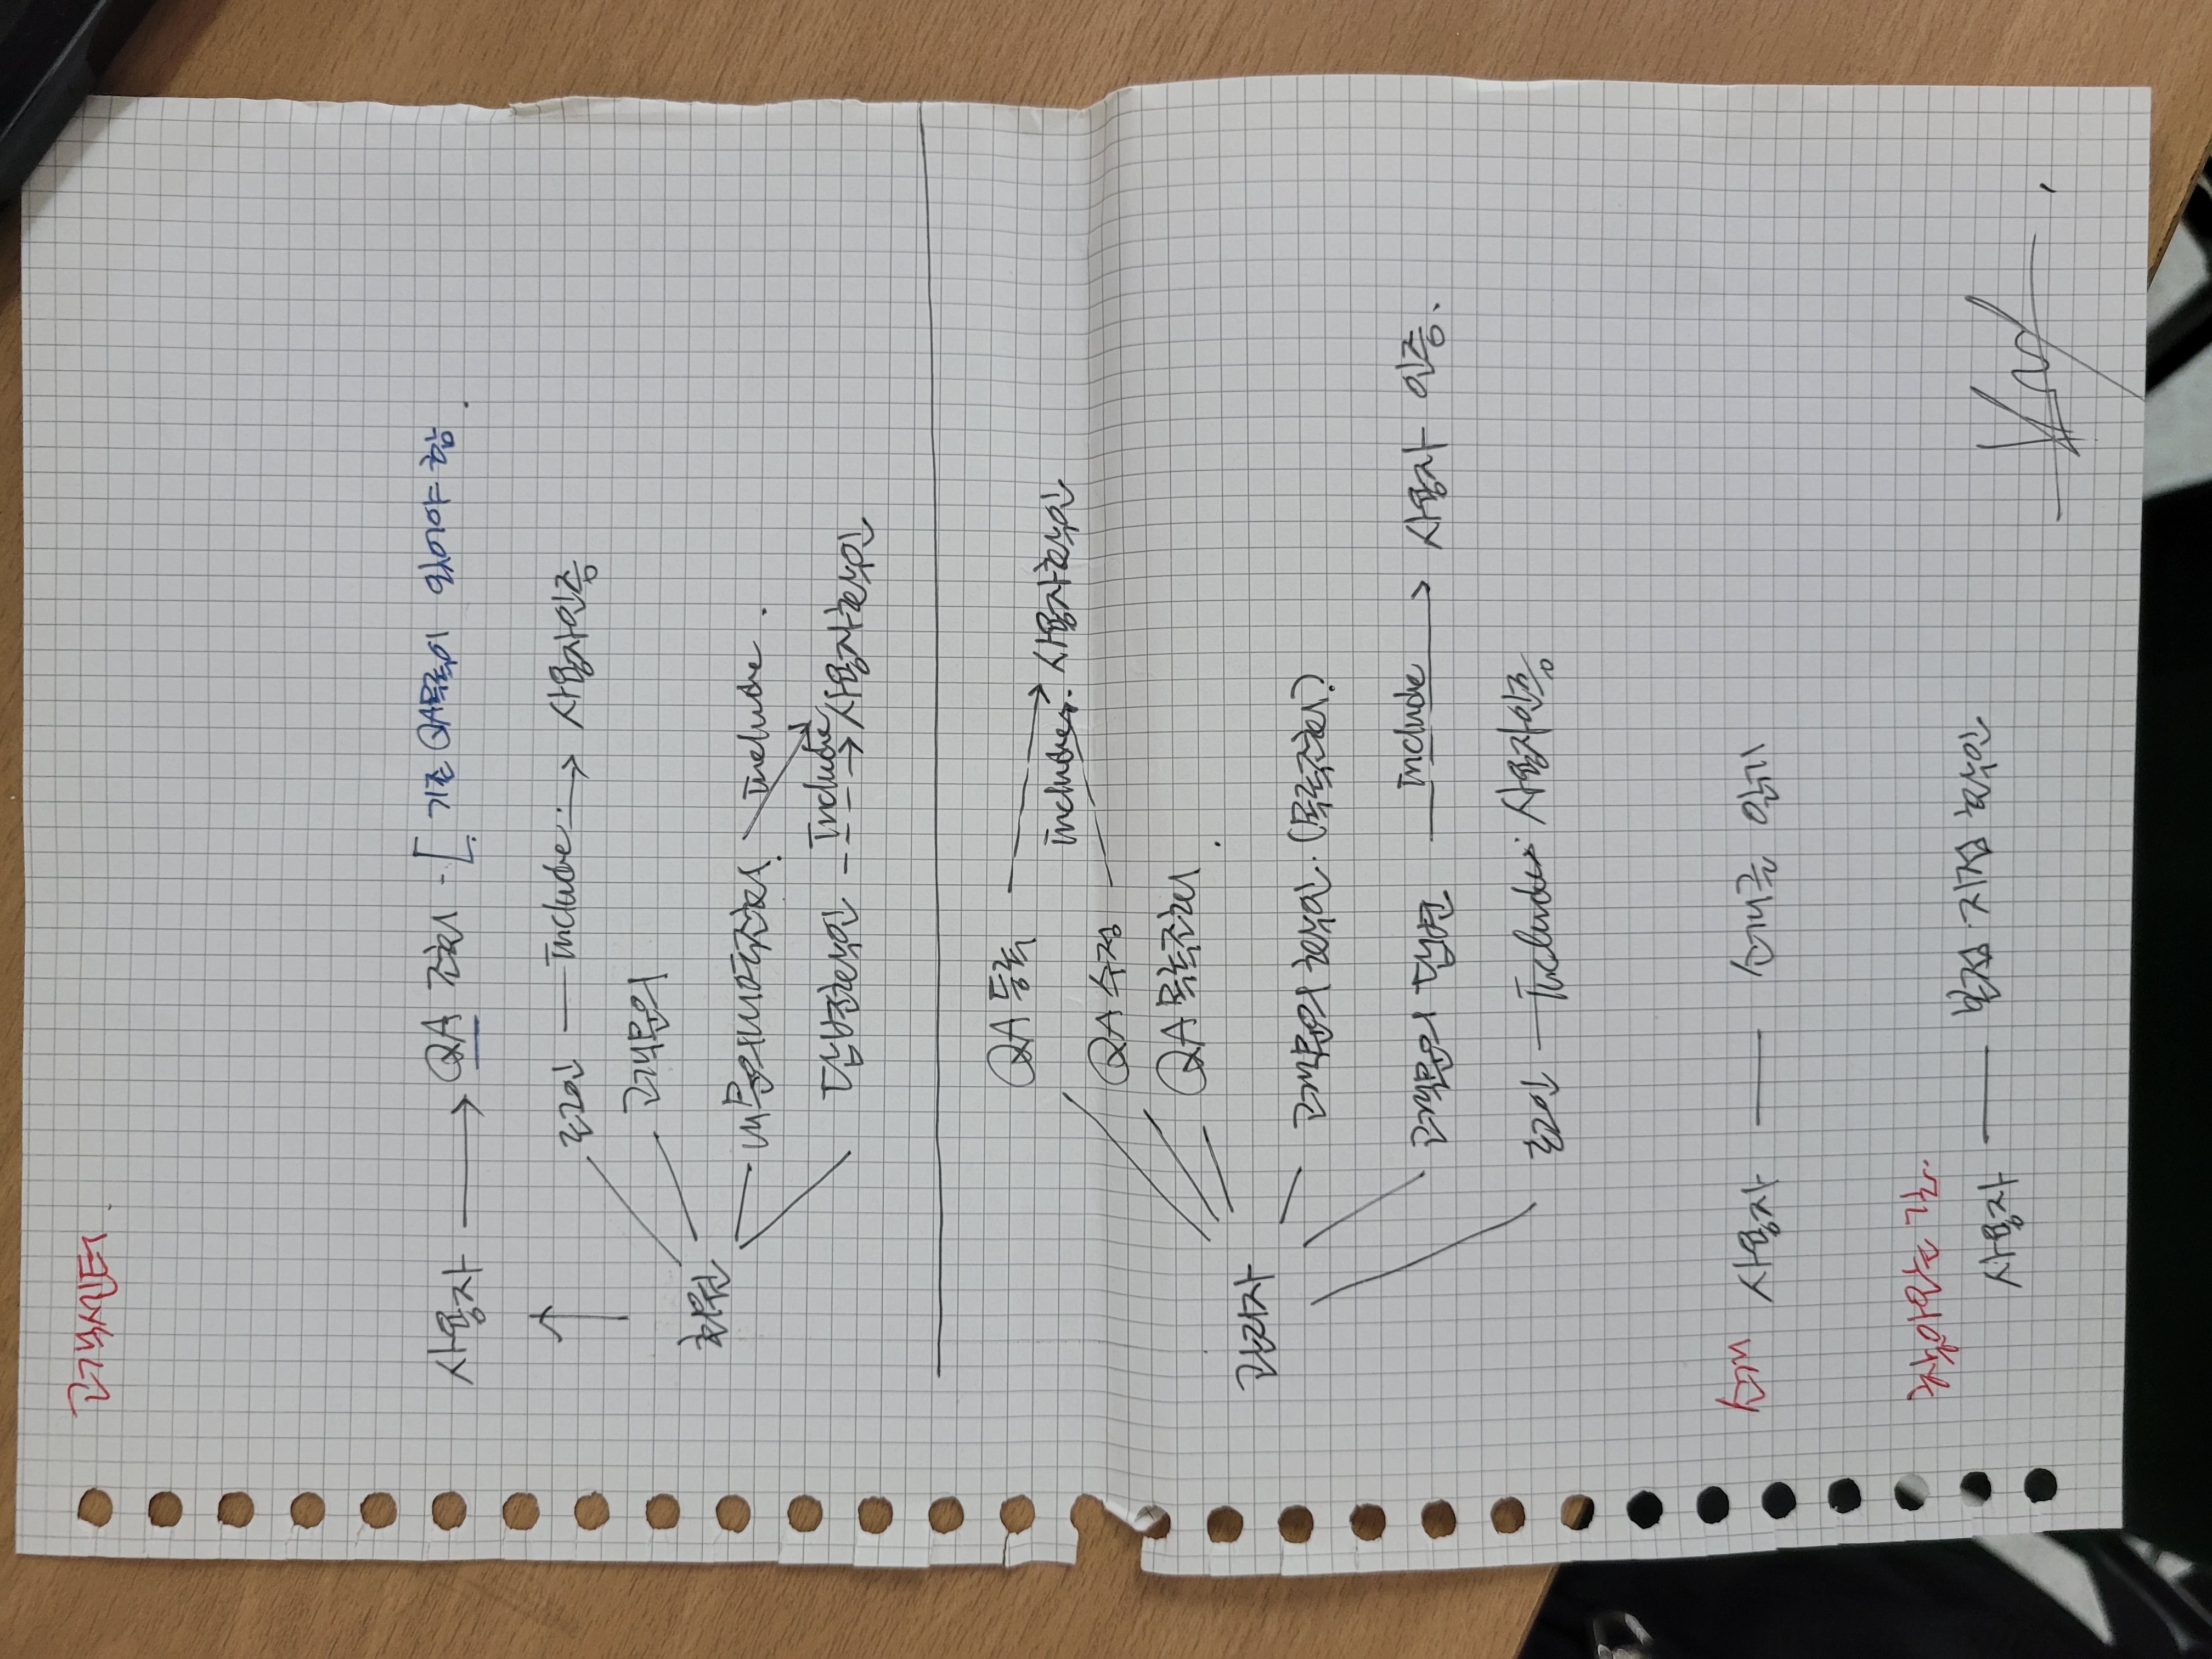 고객센터.
사용자 → QA 조회 - [ 기존 QA목록이 있어야 함.
로그인 — Include. → 사용자인증
고객문의
회원
내문의내역조회. Include.
답변확인 - Include → 사용자확인
QA 등록
Include. 사용자확인
QA 수정
QA 목록조회.
관리자
고객문의 확인. (목록조회?)
고객문의 답변 — Include → 사용자 인증.
로그인 — Include. 사용자인증
소개 사용자 — 소개글 읽기
찾아오는 길.
사용자 — 본점·지점 확인